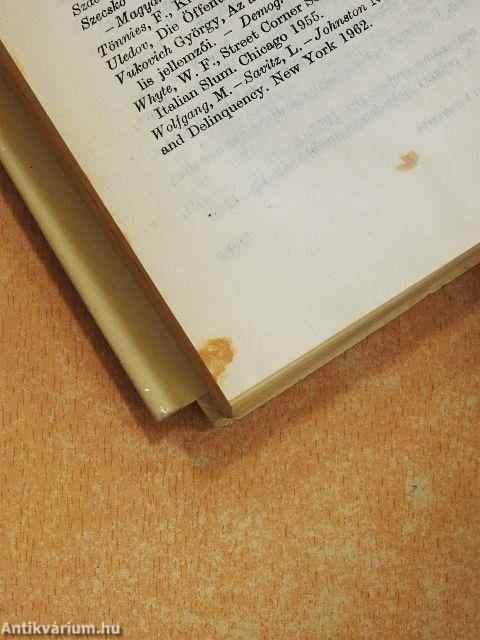 Szecskő
– Magyar
Tönnies, F., Kr
Uledov, Die Öffen
Vukovich György, Az
lis jellemzői. – Demog
Whyte, W. F., Street Corner S
Italian Slum. Chicago 1955.
Wolfgang, M. – Savitz, L. – Johnston N
and Delinquency. New York 1962.
Antikvárium.hu